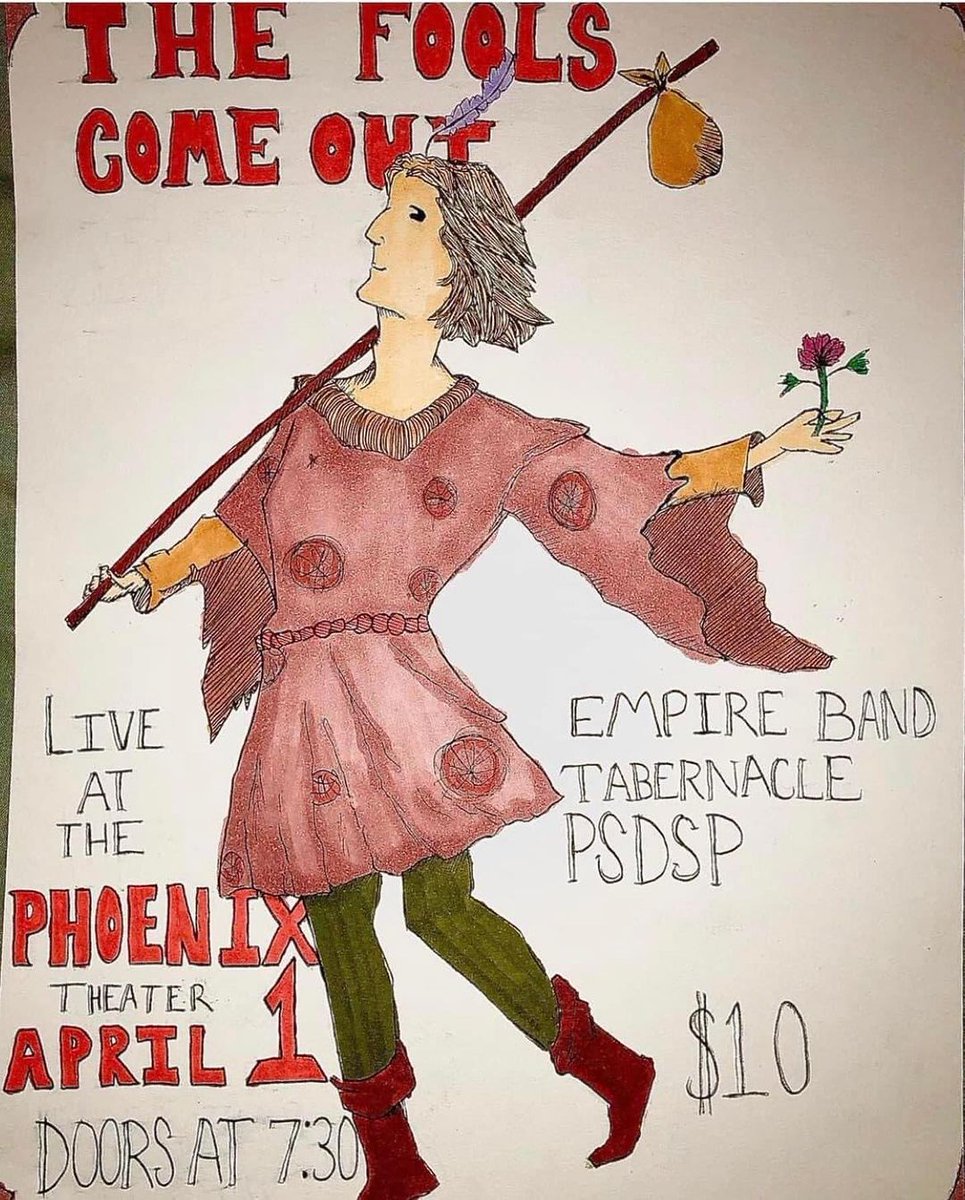 THE FOOLS
COME OUT
LIVE
AT
THE
PHOENIX
THEATER
APRIL 1
DOORS AT 7:30
EMPIRE BAND
TABERNACLE
PSDSP
$10